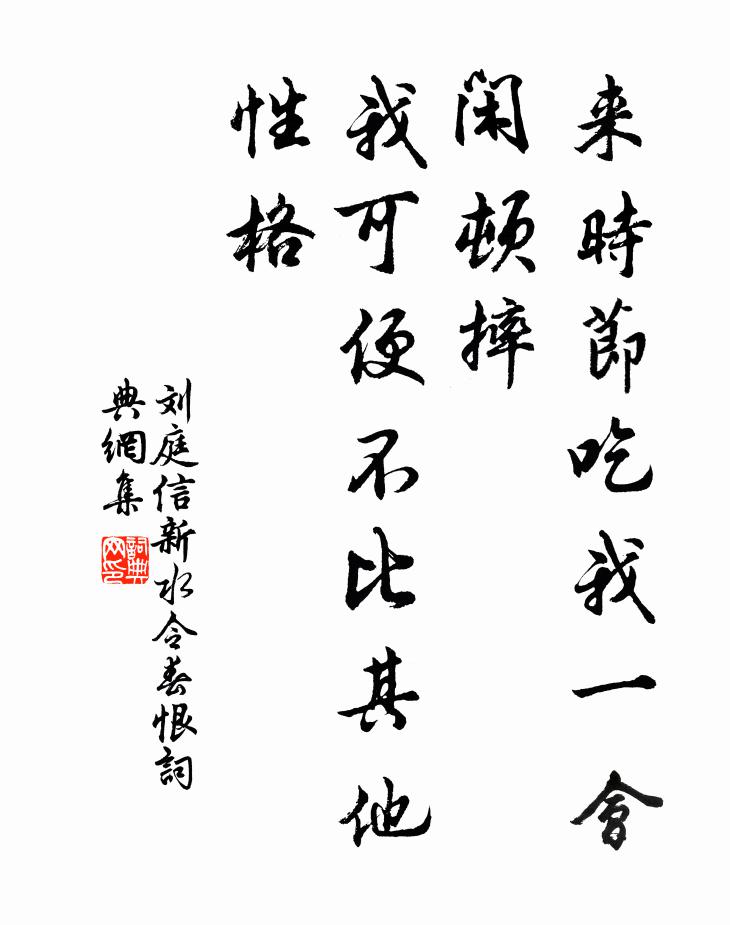 来時節吃我一會
閑頓摔
我可便不比其他
性格
刘庭信新水令春恨詞
典網集
詞典
网印